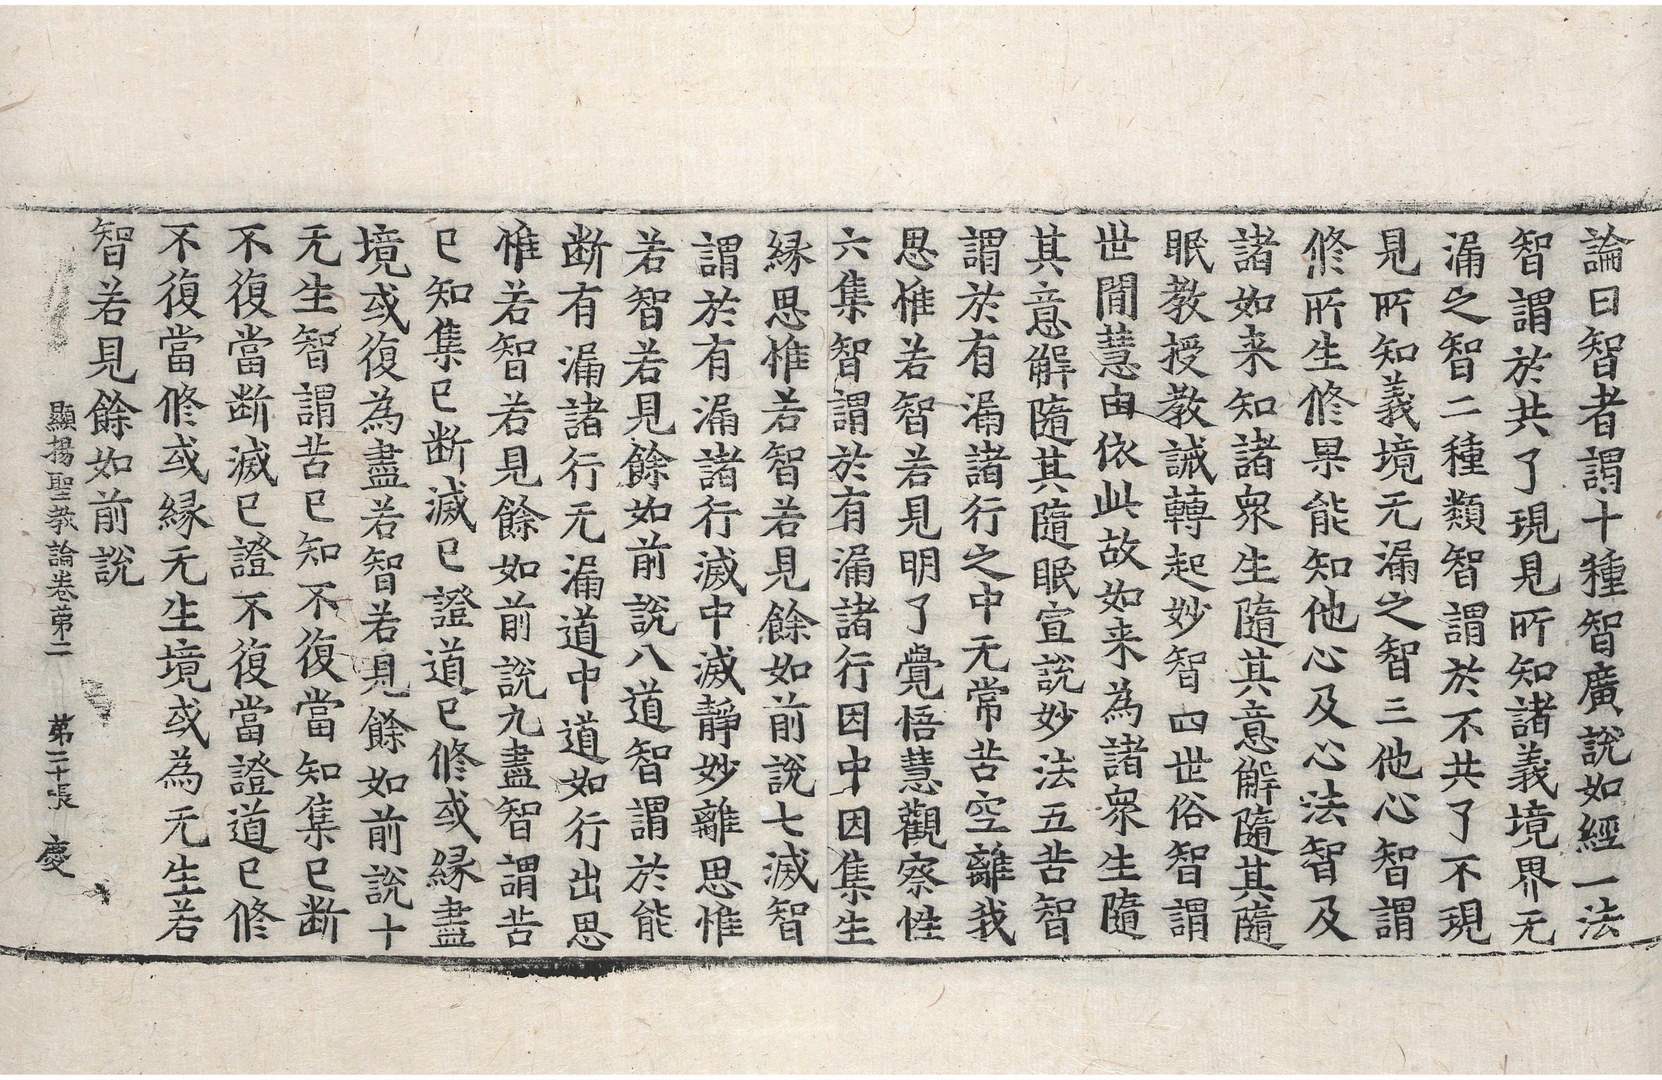 論曰智者謂十種智廣說如經一法
智謂於共了現見所知諸義境界无
漏之智二種類智謂於不共了不現
見所知義境无漏之智三他心智謂
俢所生俢果能知他心及心法智及
諸如来知諸衆生隨其意解隨其隨
眠教授教誡轉起妙智四世俗智謂
世間慧由依此故如来為諸衆生隨
其意解隨其隨眠宣說妙法五苦智
謂於有漏諸行之中无常苦空離我
思惟若智若見明了覺悟慧觀察性
六集智謂於有漏諸行因中因集生
緣思惟若智若見餘如前說七滅智
謂於有漏諸行滅中滅靜妙離思惟
若智若見餘如前說八道智謂於能
断有漏諸行无漏道中道如行出思
惟若智若見餘如前說九盡智謂苦
已知集已断滅已證道已俢或緣盡
境或復為盡若智若見餘如前說十
无生智謂苦已知不復當知集已断
不復當断滅已證不復當證道已俢
不復當俢或緣无生境或為无生若
智若見餘如前說
顯揚聖教論卷第二 第二十張 慶